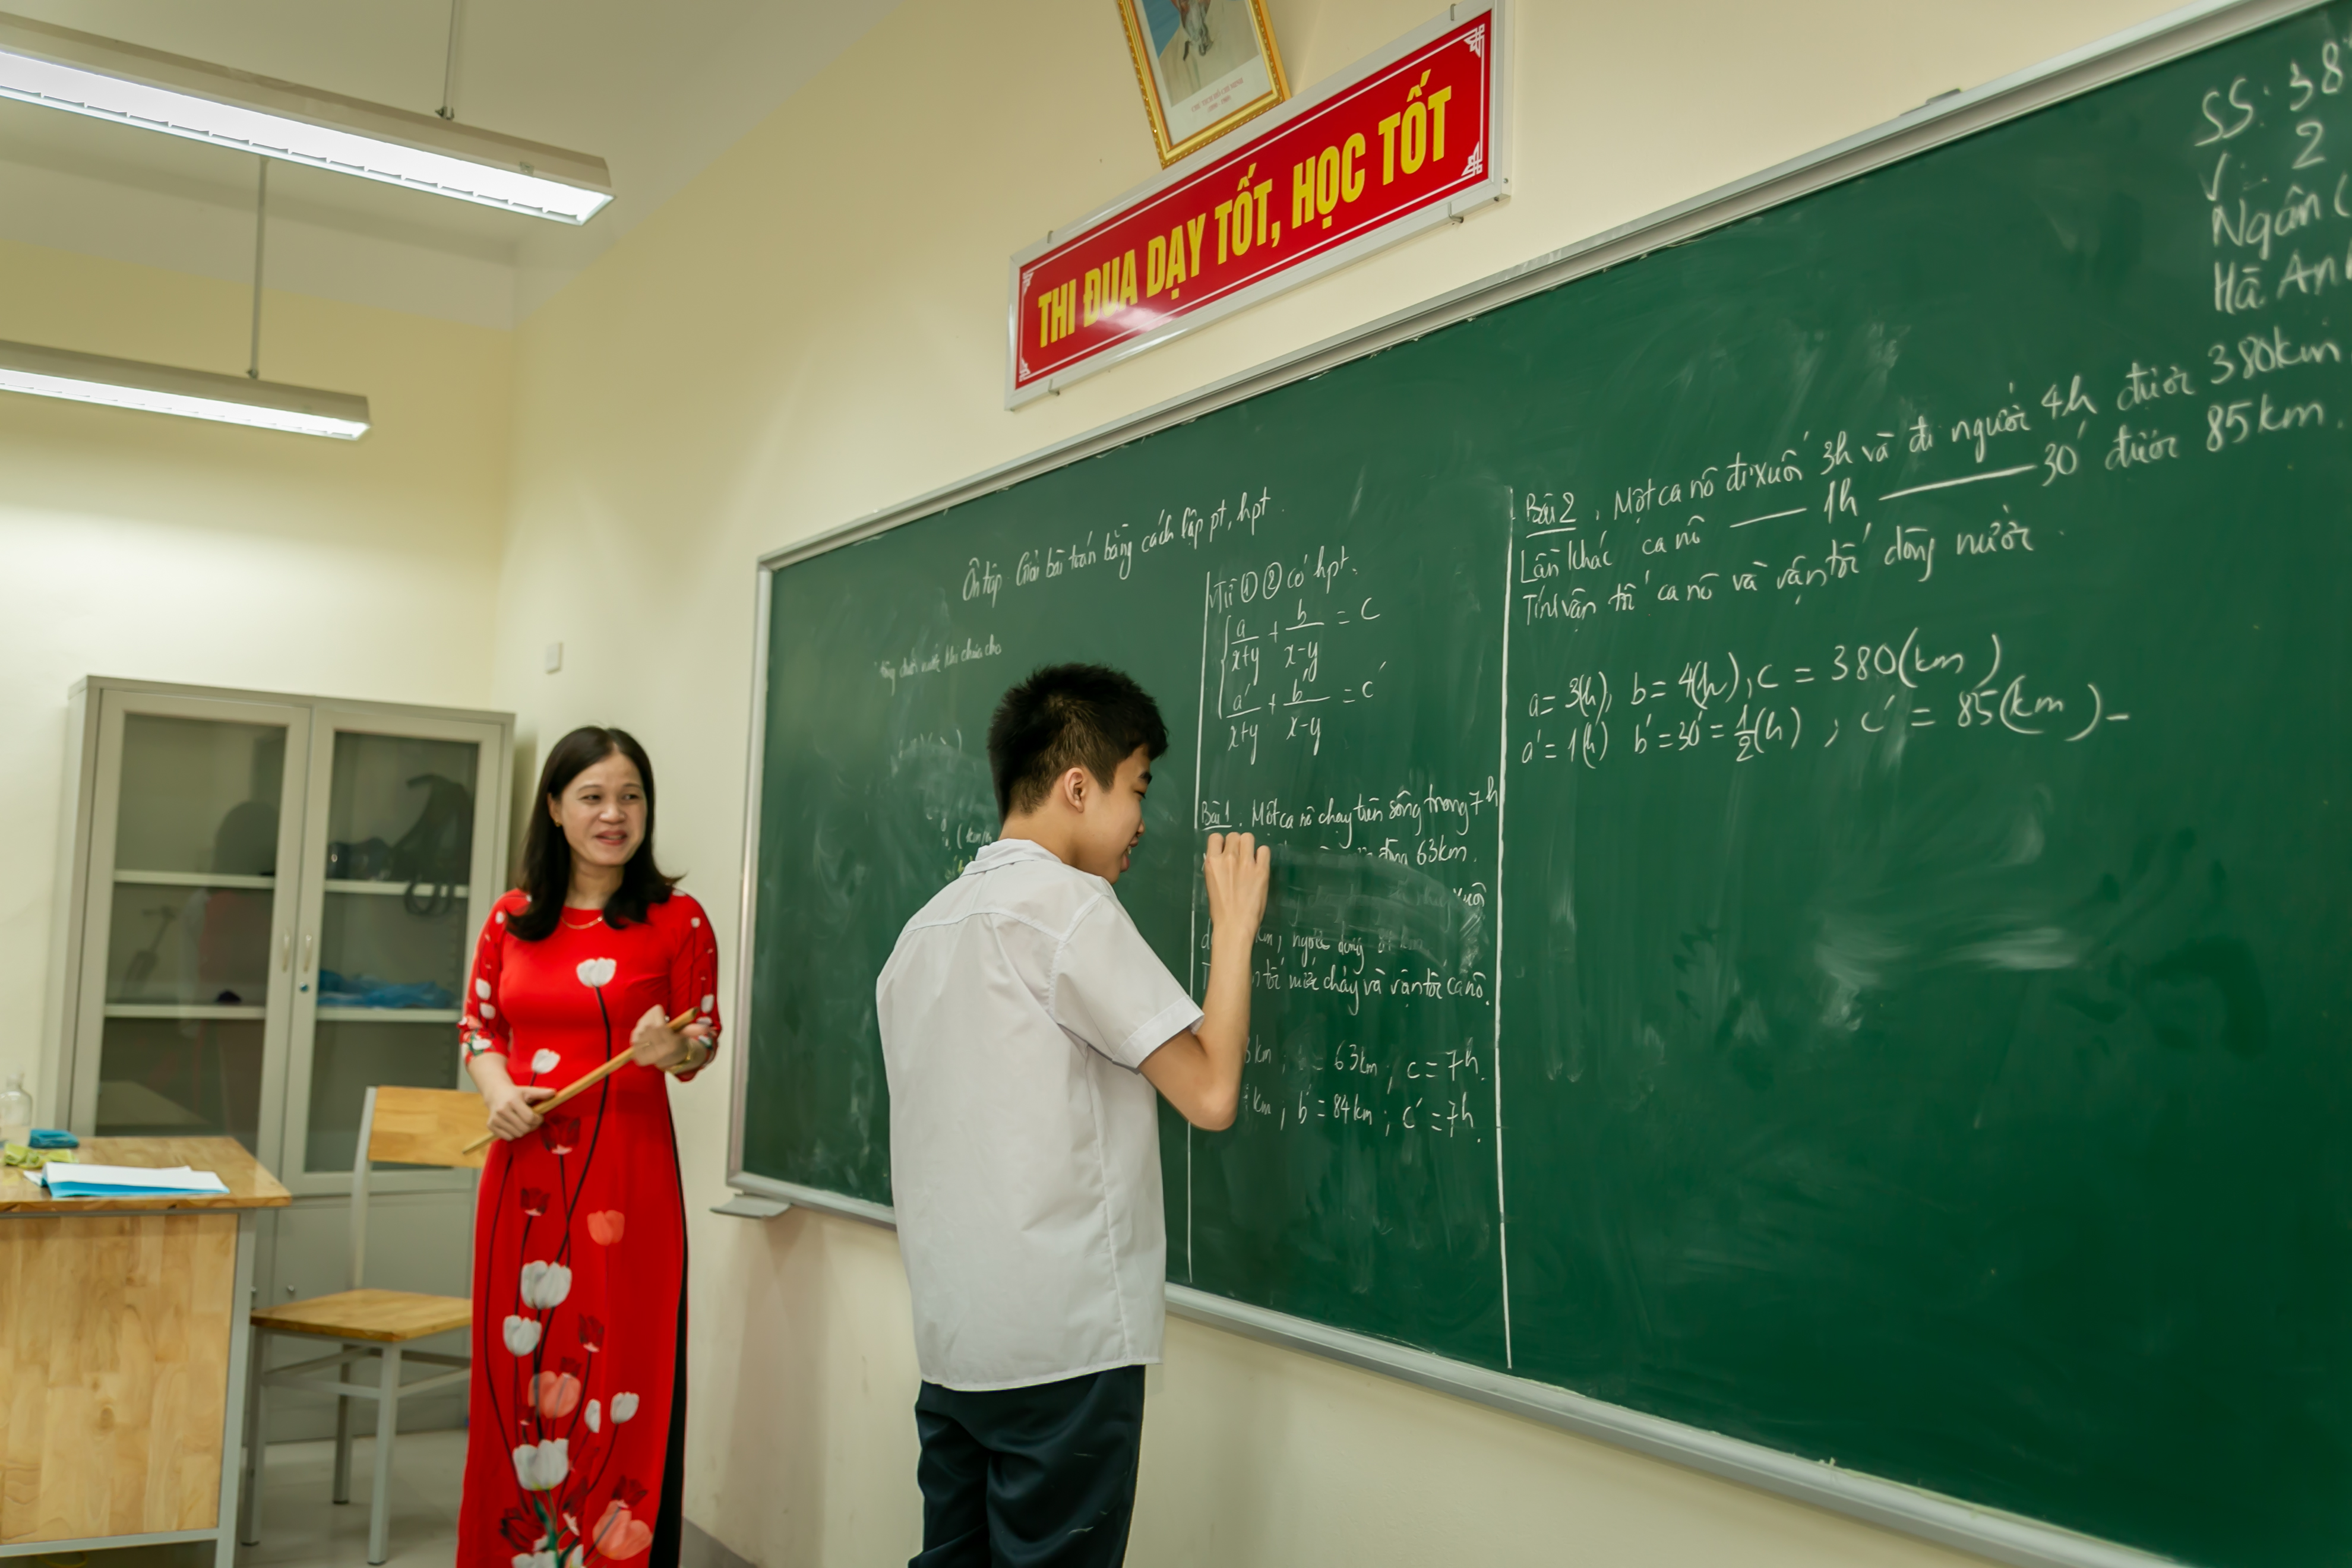 CHỦ TỊCH HỒ CHÍ MINH
THI ĐUA DẠY TỐT, HỌC TỐT
SS: 38
V: 2
Ngân (
Hà Anh
Ôn tập Giải bài toán bằng cách lập pt, hpt.
Từ ① ② có hpt.
a/(x+y) + b/(x-y) = c
a'/(x+y) + b'/(x-y) = c'
Bài 1. Một ca nô chạy trên sông trong 7h
63km.
km, ngược dòng
nước chảy và vận tốc ca nô.
km ; = 63km ; c = 7h.
km ; b' = 84km ; c' = 7h.
Bài 2. Một ca nô đi xuôi 3h và đi ngược 4h được 380km
Lần khác ca nô —— 1h —— 30' được 85km.
Tính vận tốc ca nô và vận tốc dòng nước.
a = 3(h), b = 4(h), c = 380(km)
a' = 1(h) b' = 30' = 1/2(h) ; c' = 85(km)-
(km/h